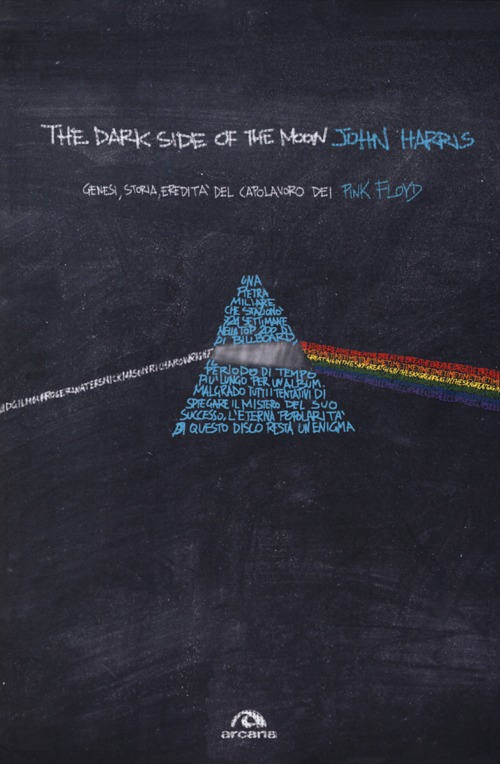 THE DARK SIDE OF THE MOON JOHN HARRIS
GENESI, STORIA, EREDITA' DEL CAPOLAVORO DEI PINK FLOYD
UNA
PIETRA
MILIARE
CHE STAZIONÒ
SETTIMANE
NELLA TOP 200 DI
DI BILLBOARD
IL
PERIODO DI TEMPO
PIU' LUNGO PER UN ALBUM.
MALGRADO TUTTI I TENTATIVI DI
SPIEGARE IL MISTERO DEL SUO
SUCCESSO, L'ETERNA POPOLARITA'
DI QUESTO DISCO RESTA UN ENIGMA
VIDGILMOURROGERWATERSNICKMASONRICHARDWRIGHT
arcana